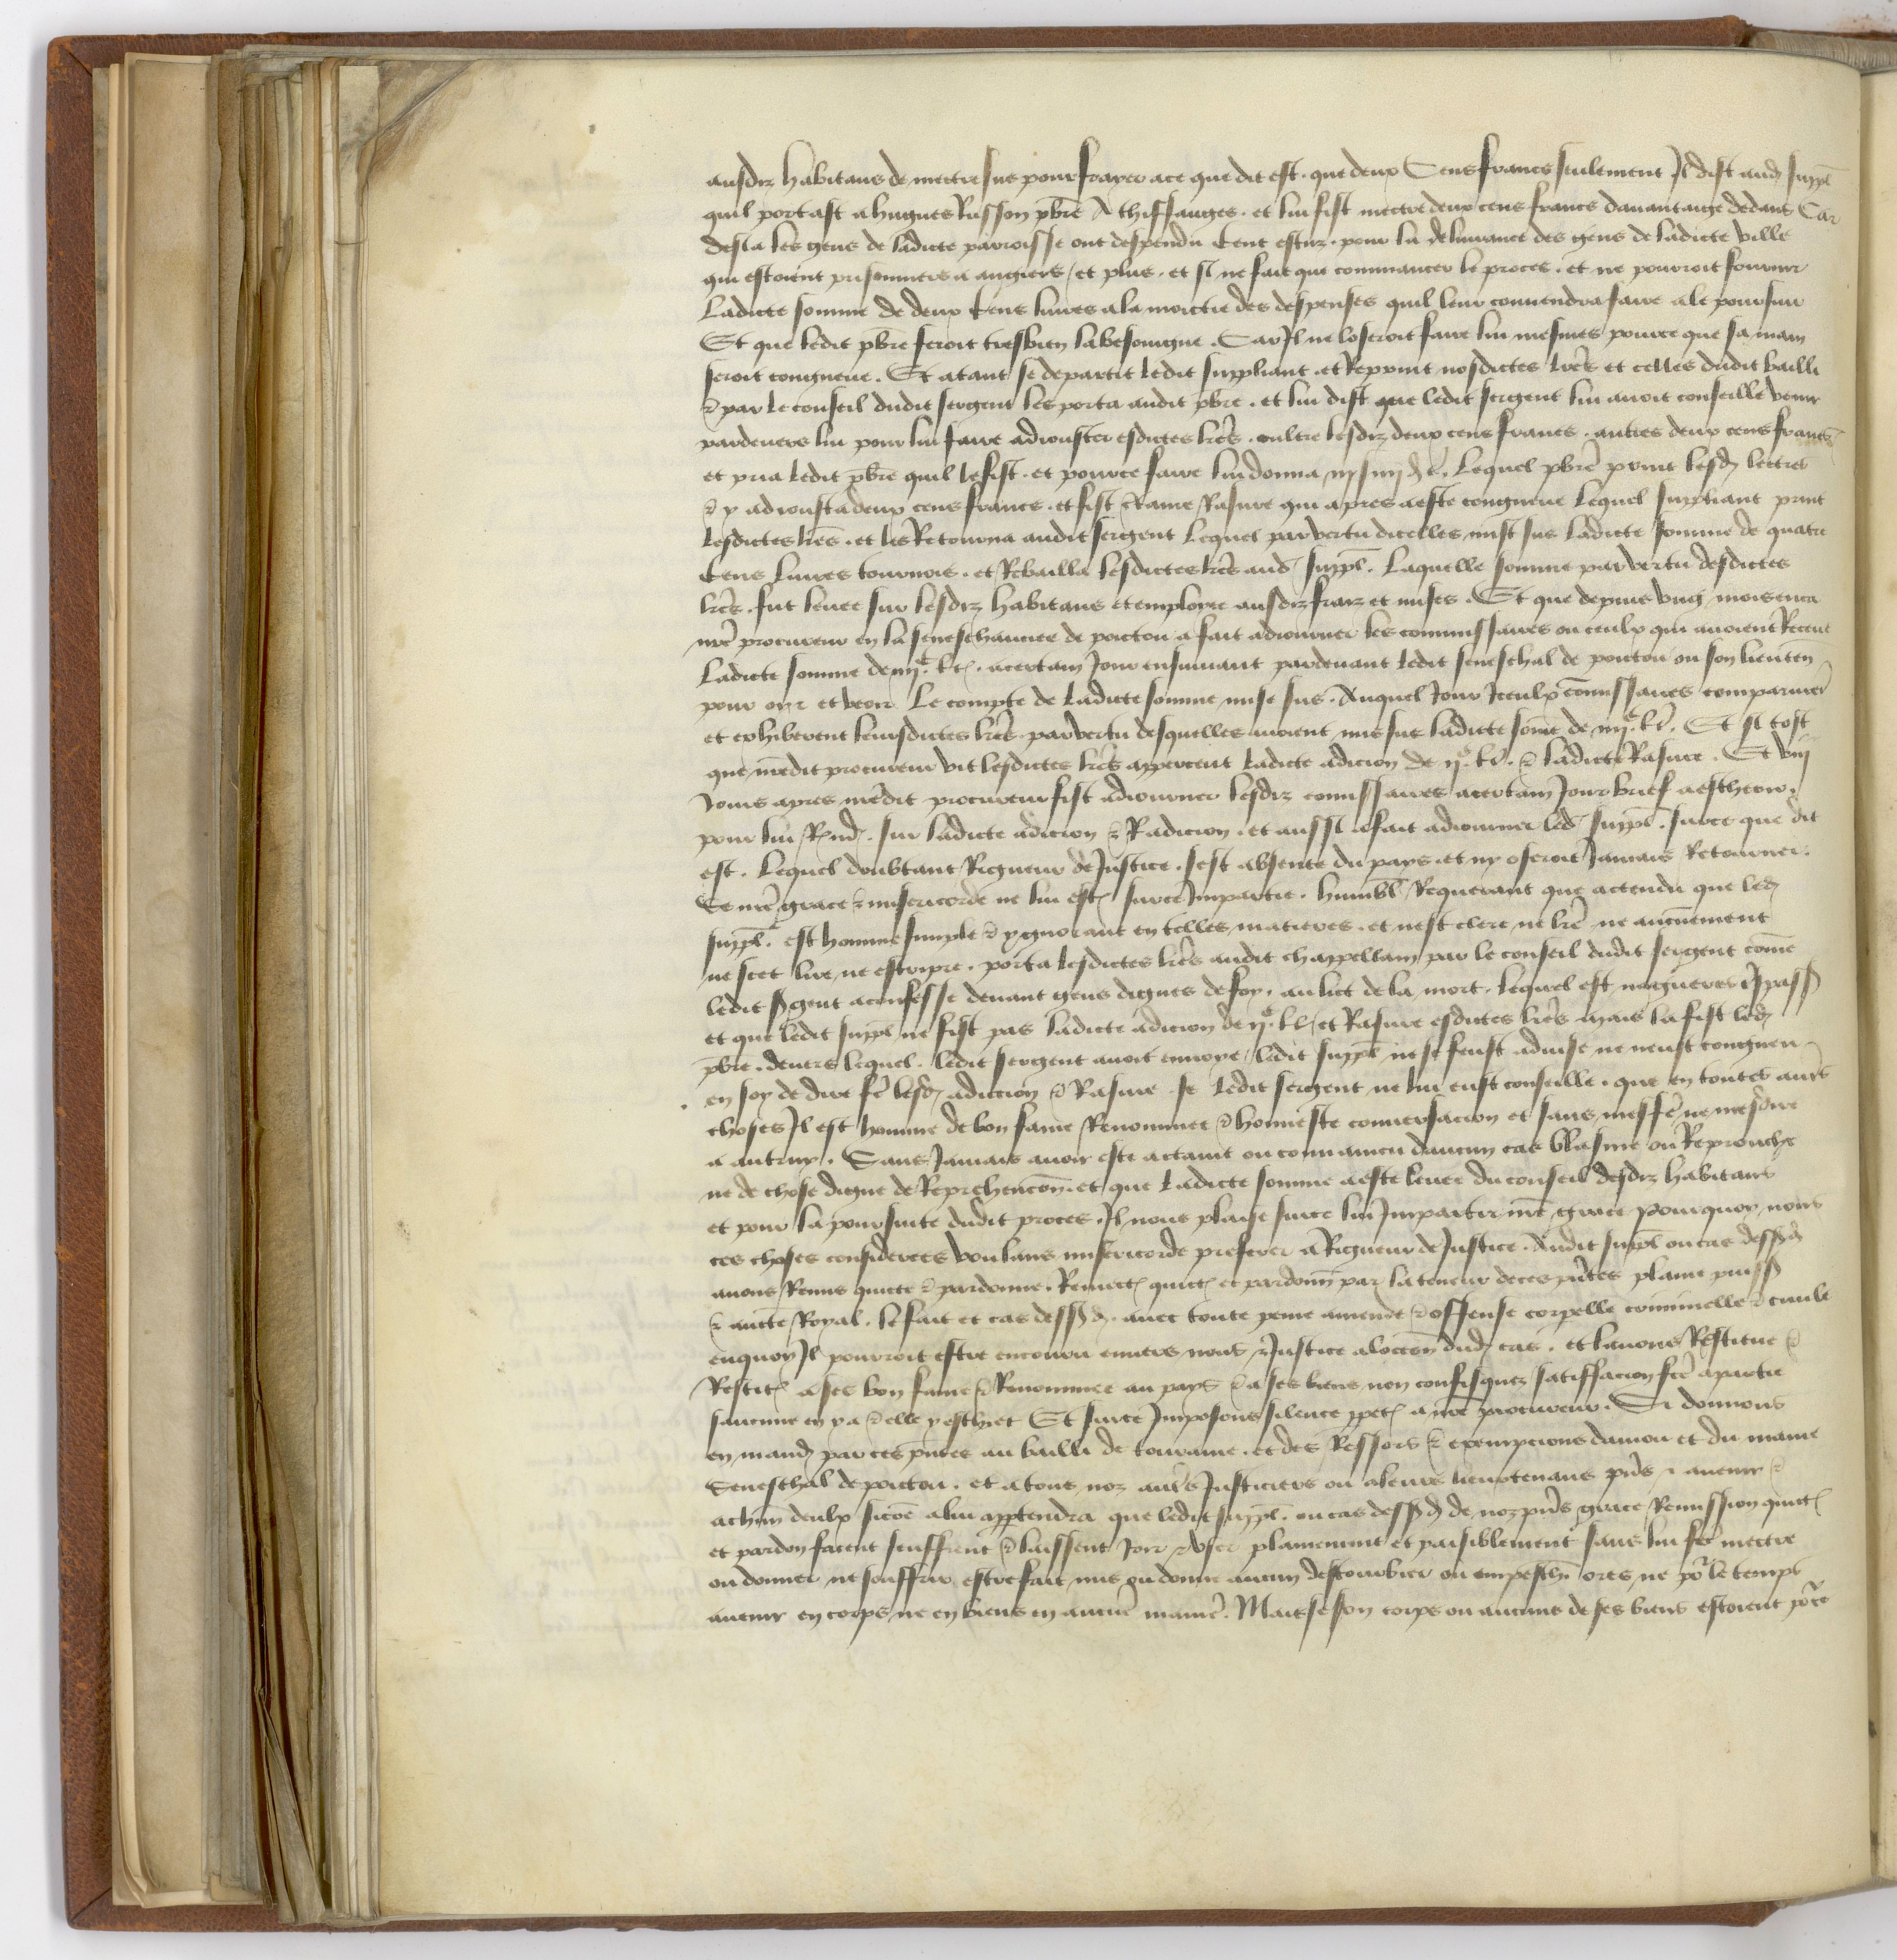 ausdiz habitans de mectre sus pour frayer a ce que dit est. que deux Cens francs seulement Il dist aud suppl
quil portast a hugues Busson pbre A thissauges. et lui fist mectre deux cens francs dauantaige dedans Car
desia les gens de ladicte parroisse ont despendu Cent escuz. pour la deliurance des gens de ladicte ville
qui estoient prisonniers a angiers / et plus. et si ne fait que commancer le proces. et ne pourroit fournir
Ladicte somme de deux Cens liures a la moictie des despenses quil leur conuendra faire a le poursuir
Et que ledit pbre feroit tresbien la besoingne. Car Il ne loseroit faire lui mesmes pource que sa main
seroit congneue. Et atant se departit ledit suppliant. et Reprint nosdictes lres et celles dudit bailli
& par le conseil dudit sergent les porta audit pbre. et lui dist que ledit sergent lui auoit conseille venir
pardeuers lui pour lui faire adiouster esdictes lres. oultre lesdiz deux cens francs. autres deux cens francs
et pria ledit pbre quil le fist. et pource faire lui donna iij s iiij d t. Lequel pbre print lesd lectres
& y adiousta deux cens francs. et fist Rasure qui apres a este congneue Lequel suppliant print
Lesdictes lres. et les Retourna audit sergent Lequel par vertu dicelles mist sus ladicte somme de quatre
Cens liures tournois. et Rebailla lesdictes lres aud suppl. Laquelle somme par vertu desdictes
lres. fut leuee sur lesdiz habitans et emploiee ausdiz fraiz et mises. Et que depuis vng mois enca
nre procureur en la seneschaucee de poictou a fait adiourner les commissaires ou ceulx qui auoient Receue
Ladicte somme de iiij c l t. a certain Jour ensuiuant pardeuant ledit seneschal de poictou ou son lieuten
pour oir et veoir Le compte de Ladicte somme mise sus. Auquel Jour Iceulx comissaires comparurer
et exhiberent leursdictes lres par vertu desquelles auoient mis sus ladicte some de iiij c l t. Et si tost
que nredit procureur vit lesdictes lres apperceut ladicte adicion de ij c l t. & ladicte Rasure. Et viij
Jours apres nredit procureur fist adiourner lesdiz comissaires a certain Jour brief a estheoir.
pour lui Rnd. sur ladicte adicion & Radicion. et aussi a fait adiourner led suppl. surce que dit
est. Lequel doubtant Rigueur de Justice. sest absente du pays et ny oseroit Jamais Retourner.
Se nre grace & misericorde ne lui est surce Impartie. humbl Requerant que actendu que led
suppl. est homme simple & ygnorant en telles matieres. et nest clerc ne lre ne aucunement
ne scet lire ne escripre. porta lesdictes lres audit chappellain par le conseil dudit sergent come
ledit sgent a confesse deuant gens dignes de foy. au lict de la mort. lequel est nagueres trspasse
et que ledit suppl ne fist pas ladicte adicion de ij c l t et Rasure esdictes lres mais la fist led
pbre. deuers lequel. ledit sergent auoit enuoye ledit suppl ne se feust aduise ne neust congneu
en soy de dire fe lesd adicion & Rasure se Ledit sergent ne lui eust conseille. que en toutes aures
choses Il est homme de bon fame Renommee & honneste conuersacion et sans meffe ne mesdire
a autruy. Sans Jamais auoir este actaint ou conuaincu daucun cas blasme ou Reprouche
ne de chose digne de Reprehencon. et que Ladicte somme a este leuee du conseil desdiz habitans
et pour la poursuite dudit proces. Il nous plaise surce lui Impartir nre grace Pourquoy nous
ces choses considerees voulans misericorde preferer a Rigueur de Justice. Audit suppl ou cas dessusd
auons Remis quicte & pardonne. Remect quict et pardonn par la teneur de ces pntes plaine puiss
& aucte Royal. le fait et cas dessusd. auec toute peine amende & offense corpelle criminelle & ciuile
enquoy Il pourroit estre encouru enuers nous & Justice a loccon dud cas. et lauons Restitue &
Restit a ses bon fame & Renommee au pays & a ses biens non confisquez satiffacion fce a partie
saucune en y a & elle y eschiet Et surce Imposons silence ppet a nre procureur. Si donnons
en mand par ces pntes au bailli de touraine. et des Ressors & exempcions daniou et du maine
Seneschal de poictou. et a tous noz aures Justiciers ou a leurs lieuxtenans pns & auenir &
a chun deulx sicoe a lui apptendra que ledit suppl. ou cas dessusd de noz pns grace Remission quict
et pardon facent seuffrent & laissent Joir & vser plainement et paisiblement sans lui fe mectre
ou donner ne souffrir estre fait mis ou donne aucun destourbier ou empeschn ores ne pr le temps
auenir en corps ne en biens en aucune manie. Mais se son corps ou aucuns de ses biens estoient prce